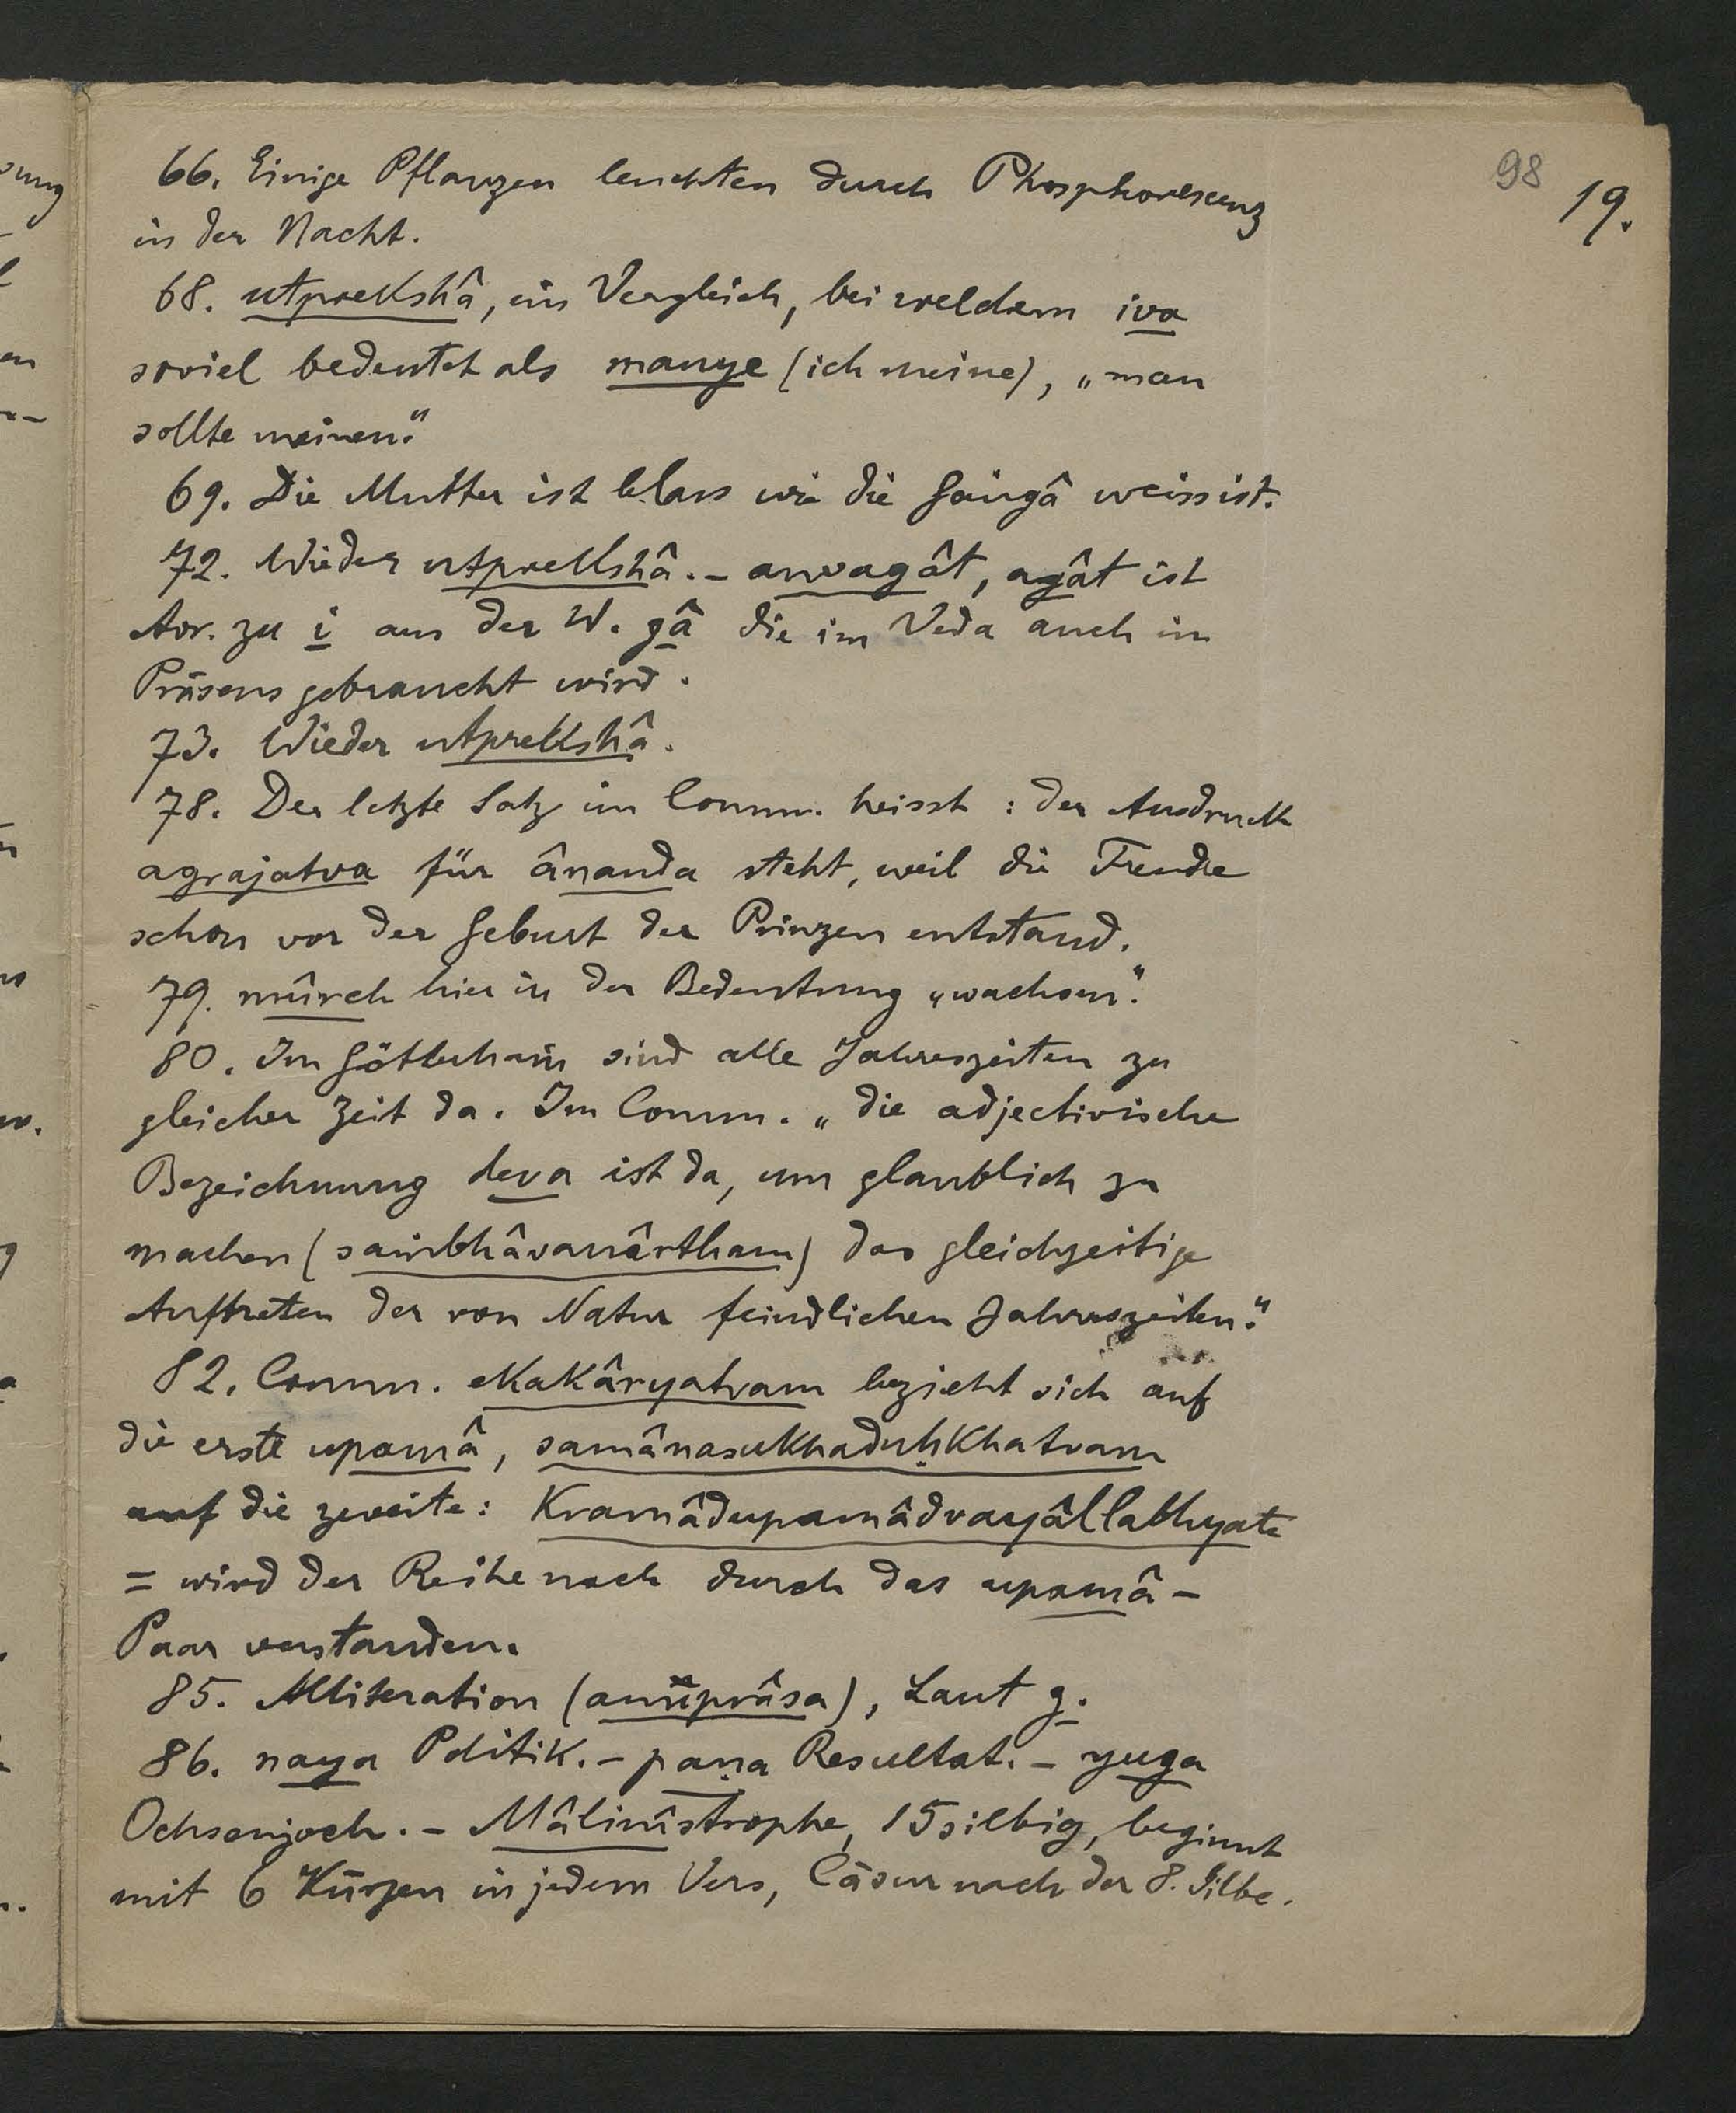 98
19.
66. Einige Pflanzen leuchten durch Phosphorescenz
in der Nacht.
68. utprekshâ, ein Vergleich, bei welchem iva
soviel bedeutet als manye (ich meine), „man
sollte meinen“.
69. Die Mutter ist blass wie die Gaṅgâ weiss ist.
72. Wieder utprekshâ. – anvagât, agât ist
Aor. zu i aus der W. gâ die im Veda auch im
Präsens gebraucht wird.
73. Wieder utprekshâ.
78. Der letzte Satz im Comm. heisst: der Ausdruck
agrajatva für ânanda steht, weil die Freude
schon vor der Geburt des Prinzen entstand.
79. mûrch hier in der Bedeutung „wachsen“.
80. Im Götterhain sind alle Jahreszeiten zu
gleicher Zeit da. Im Comm. „die adjectivische
Bezeichnung deva ist da, um glaublich zu
machen (saṁbhâvanârtham) das gleichzeitige
Auftreten der von Natur feindlichen Jahreszeiten“.
82. Comm. ekakâryatvam bezieht sich auf
die erste upamâ, samânasukhaduḥkhatvam
auf die zweite: kramâdupamâdvayâllabhyate
= wird der Reihe nach durch das upamâ-
Paar verstanden.
85. Alliteration (anuprâsa), Laut g.
86. naya Politik. – paṇa Resultat. – yuga
Ochsenjoch. – Mâlinîstrophe, 15silbig, beginnt
mit 6 Kürzen in jedem Vers, Cäsur nach der 8. Silbe.